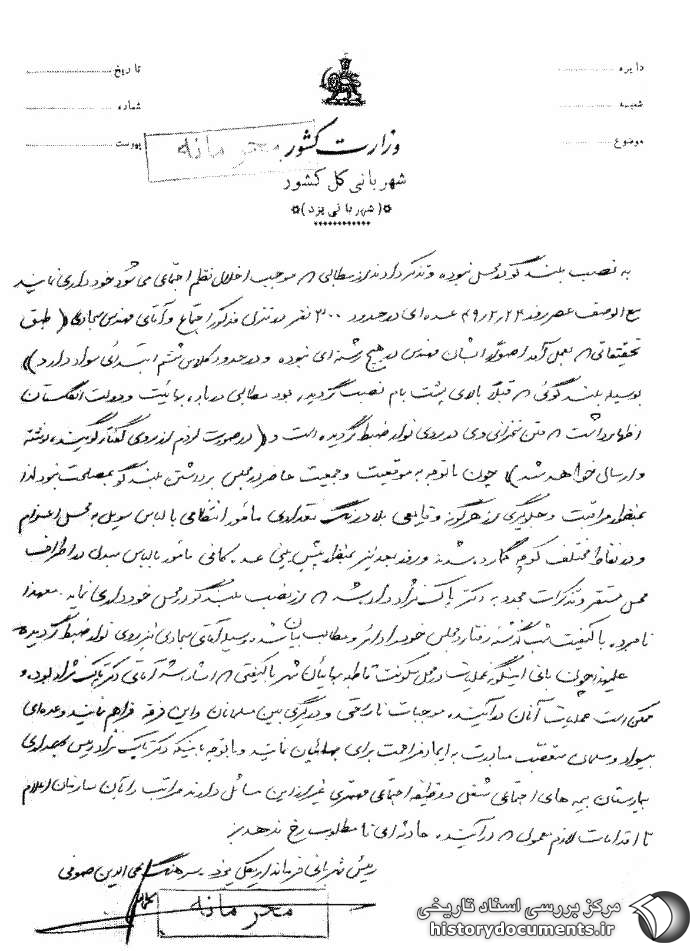 دایره
شعبه
موضوع
تاریخ
شماره
پیوست
وزارت کشور
محرمانه
شهربانی کل کشور
(شهربانی یزد)
به نصب بلندگو در محل نبوده و تذکر دادند از مطالبی که موجب اخلال نظم اجتماعی می شود خودداری نمایند
مع الوصف عصر روز ۴۹٫۲٫۲۴ عده ای در حدود ۳۰۰ نفر در منزل مذکور اجتماع و آقای مهندس سجادی (طبق
تحقیقاتی که بعمل آمد اصولاً ایشان مهندس در هیچ رشته ای نبوده و در حدود کلاس ششم ابتدائی سواد دارد)
بوسیله بلندگوئی که قبلاً بالای پشت بام نصب گردیده بود مطالبی درباره بهائیت و دولت انگلستان
اظهار داشت که متن سخنرانی وی در روی نوار ضبط گردیده است و (در صورت لزوم از روی گفتار گوینده نوشته
و ارسال خواهد شد) چون با توجه به موقعیت و جمعیت حاضر در مجلس برداشتن بلندگو بمصلحت نبود لذا
بمنظور مراقبت و جلوگیری از هرگونه وقایعی بلادرنگ تعدادی مأمور انتظامی با لباس سویل به محل اعزام
و در نقاط مختلف کوچه گمارده شدند و روز بعد نیز بمنظور پیش بینی عده کافی مأمور با لباس مبدل در اطراف
محل مستقر و تذکرات مجدد به دکتر پاک نژاد داده شد که از نصب بلندگو در محل خودداری نماید. معهذا
نامبرده با کیفیت شب گذشته رفتار و مجلس خود را دائر و مطالب بیان شده وسیله آقای سجادی نیز روی نوار ضبط گردیده
علیهذا چون بانی اینگونه عملیات در محل سکونت قاطبه بهائیان شهر با کیفیتی که اشاره شد آقای دکتر پاک نژاد بوده و
ممکن است عملیات آنان در آینده موجبات ناراحتی و درگیری بین مسلمانان و این فرقه فراهم نمایند و عده ای
بیسواد و مسلمان متعصب مبادرت به ایجاد مزاحمت برای بهائیان نمایند و با توجه باینکه دکتر پاک نژاد رئیس بهداری
بیمارستان بیمه های اجتماعی شغل و وظیفه اجتماعی مهمتری غیر از این مسائل دارند مراتب را بآن سازمان اعلام
تا اقدامات لازم معمول که در آینده حادثه ای نامطلوب رخ ندهد
رئیس شهربانی فرمانداریکل یزد. سرهنگ محی الدین صوفی
محرمانه
مرکز بررسی اسناد تاریخی
historydocuments.ir